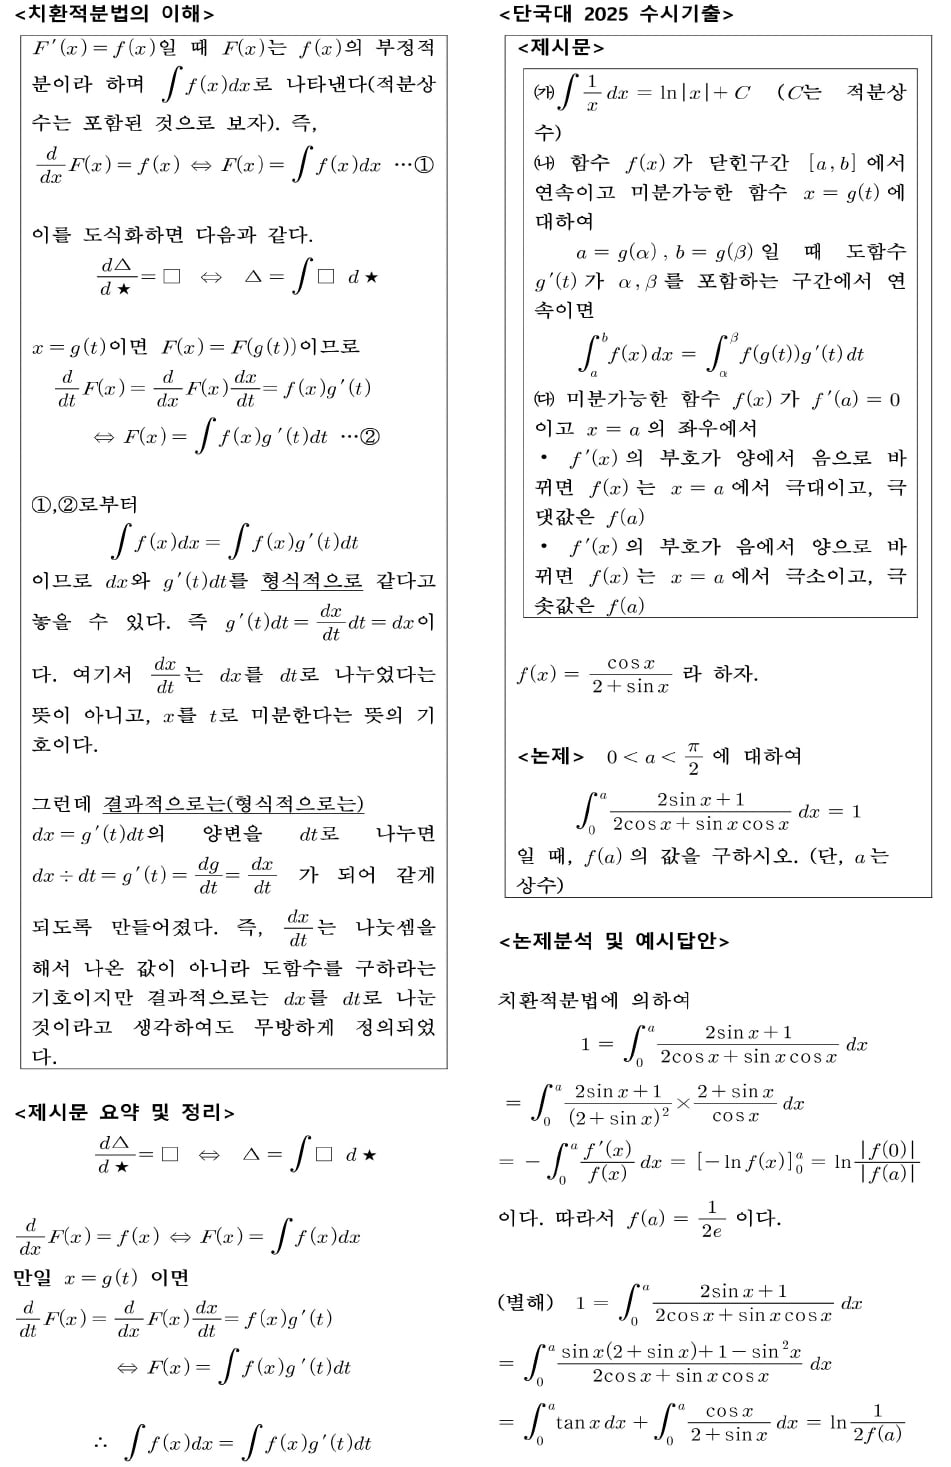 <치환적분법의 이해>
F′(x)=f(x)일 때 F(x)는 f(x)의 부정적
분이라 하며 ∫f(x)dx로 나타낸다(적분상
수는 포함된 것으로 보자). 즉,
d/dx F(x)=f(x) ⇔ F(x)=∫f(x)dx ⋯①
이를 도식화하면 다음과 같다.
d△/d★=□ ⇔ △=∫□ d★
x=g(t)이면 F(x)=F(g(t))이므로
d/dt F(x)=d/dx F(x) dx/dt=f(x)g′(t)
⇔ F(x)=∫f(x)g′(t)dt ⋯②
①,②로부터
∫f(x)dx=∫f(x)g′(t)dt
이므로 dx와 g′(t)dt를 형식적으로 같다고
놓을 수 있다. 즉 g′(t)dt=dx/dt dt=dx이
다. 여기서 dx/dt는 dx를 dt로 나누었다는
뜻이 아니고, x를 t로 미분한다는 뜻의 기
호이다.
그런데 결과적으로는(형식적으로는)
dx=g′(t)dt의 양변을 dt로 나누면
dx÷dt=g′(t)=dg/dt=dx/dt 가 되어 같게
되도록 만들어졌다. 즉, dx/dt는 나눗셈을
해서 나온 값이 아니라 도함수를 구하라는
기호이지만 결과적으로는 dx를 dt로 나눈
것이라고 생각하여도 무방하게 정의되었
다.
<제시문 요약 및 정리>
d△/d★=□ ⇔ △=∫□ d★
d/dx F(x)=f(x) ⇔ F(x)=∫f(x)dx
만일 x=g(t) 이면
d/dt F(x)=d/dx F(x) dx/dt=f(x)g′(t)
⇔ F(x)=∫f(x)g′(t)dt
∴ ∫f(x)dx=∫f(x)g′(t)dt
<단국대 2025 수시기출>
<제시문>
㈎∫1/x dx=ln|x|+C (C는 적분상
수)
㈏ 함수 f(x)가 닫힌구간 [a,b]에서
연속이고 미분가능한 함수 x=g(t)에
대하여
a=g(α), b=g(β)일 때 도함수
g′(t)가 α,β를 포함하는 구간에서 연
속이면
∫_a^b f(x)dx=∫_α^β f(g(t))g′(t)dt
㈐ 미분가능한 함수 f(x)가 f′(a)=0
이고 x=a의 좌우에서
• f′(x)의 부호가 양에서 음으로 바
뀌면 f(x)는 x=a에서 극대이고, 극
댓값은 f(a)
• f′(x)의 부호가 음에서 양으로 바
뀌면 f(x)는 x=a에서 극소이고, 극
솟값은 f(a)
f(x)=cosx/(2+sinx) 라 하자.
<논제> 0<a<π/2 에 대하여
∫_0^a (2sinx+1)/(2cosx+sinxcosx) dx=1
일 때, f(a)의 값을 구하시오. (단, a는
상수)
<논제분석 및 예시답안>
치환적분법에 의하여
1=∫_0^a (2sinx+1)/(2cosx+sinxcosx) dx
=∫_0^a (2sinx+1)/(2+sinx)²×(2+sinx)/cosx dx
=−∫_0^a f′(x)/f(x) dx=[−lnf(x)]_0^a=ln|f(0)|/|f(a)|
이다. 따라서 f(a)=1/2e 이다.
(별해) 1=∫_0^a (2sinx+1)/(2cosx+sinxcosx) dx
=∫_0^a (sinx(2+sinx)+1−sin²x)/(2cosx+sinxcosx) dx
=∫_0^a tanxdx+∫_0^a cosx/(2+sinx) dx=ln 1/2f(a)